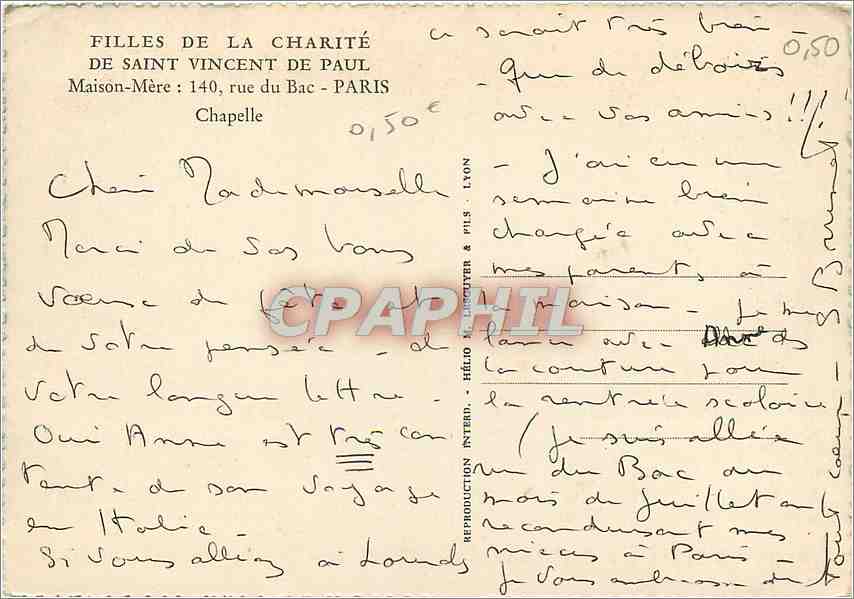 FILLES DE LA CHARITÉ
DE SAINT VINCENT DE PAUL
Maison-Mère : 140, rue du Bac - PARIS
Chapelle
0,50€
Chère Mademoiselle
Merci de vos bons
voeux de fête et
de votre pensée - de
votre longue lettre -
Oui Anne est très con
tente de son voyage
en Italie -
Si vous alliez à Lourdes
REPRODUCTION INTERD. - HÉLIO M. LESCUYER & FILS - LYON
ce serait très bien -
0,50
- que de déboires
avec vos amies !!!
- J'ai eu une
semaine bien
chargée avec
mes parents à
la maison - je me
lance avec des
la couture pour
la rentrée scolaire
(je suis allée
rue du Bac au
mois de juillet en
reconduisant mes
nièces à Paris -
Je vous embrasse de
tout coeur -
CPAPHIL